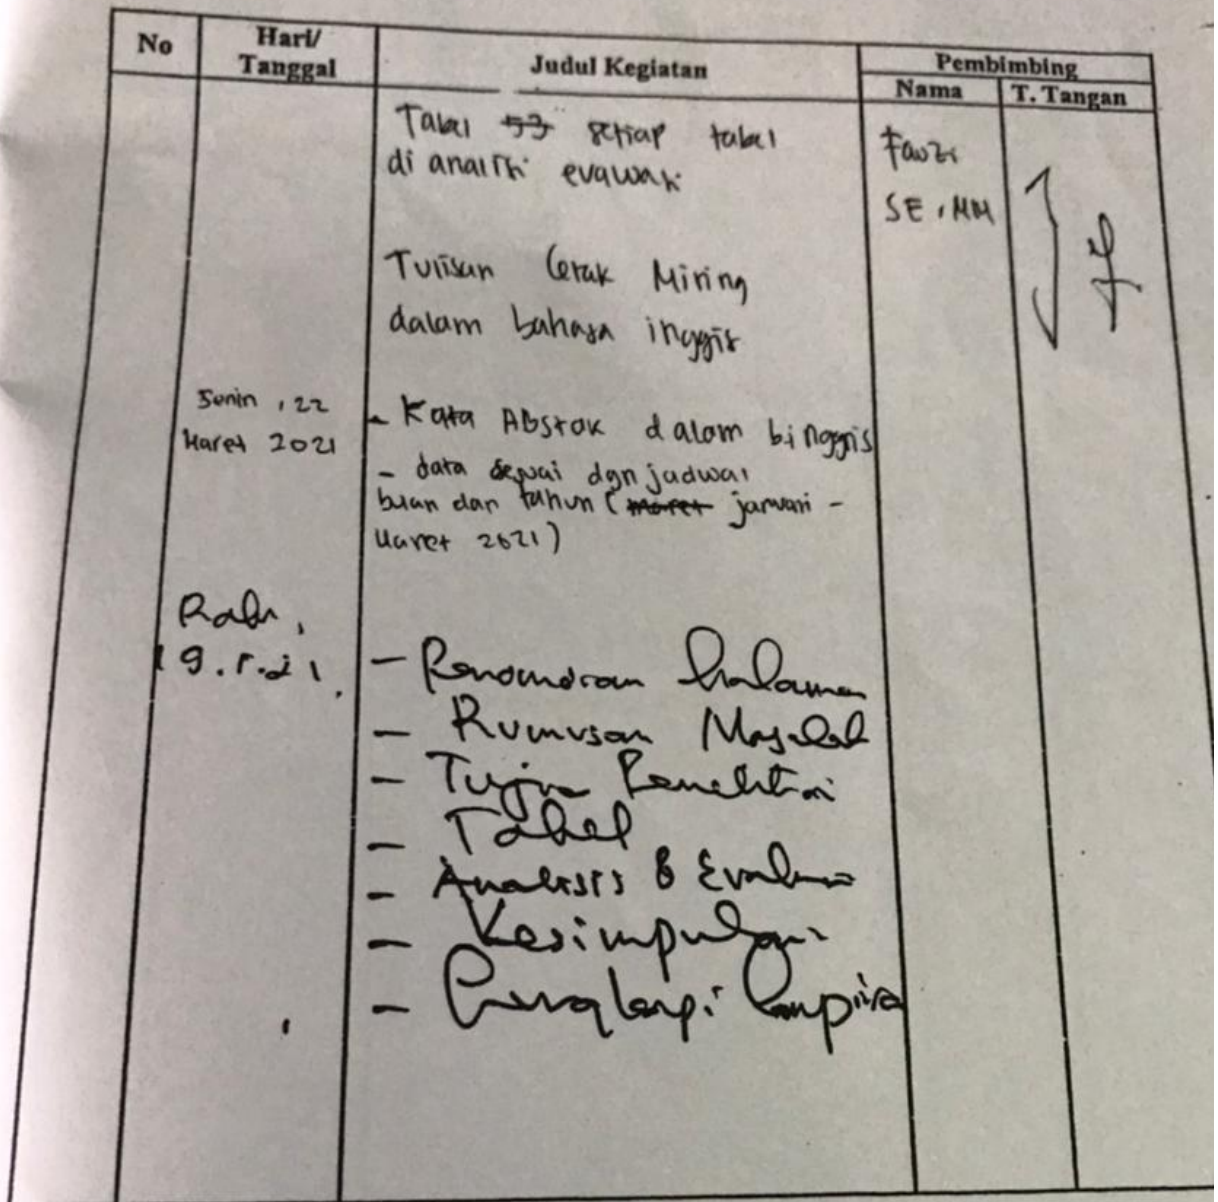 No
Hari/
Tanggal
Judul Kegiatan
Pembimbing
Nama
T. Tangan
Tabel setiap tabel
di analisis evaluasi
Fauzi
SE, MM
Tulisan Cetak Miring
dalam bahasa inggris
Senin, 22
Maret 2021
- Kata Abstrak dalam b. inggris
- data sesuai dgn jadwal
bulan dan tahun (maret januari -
Maret 2021)
Rabu,
19.5.21.
- Penomoran halaman
- Rumusan Masalah
- Tujuan Penelitian
- Tabel
- Analisis & Evaluasi
- Kesimpulan
- lampiran